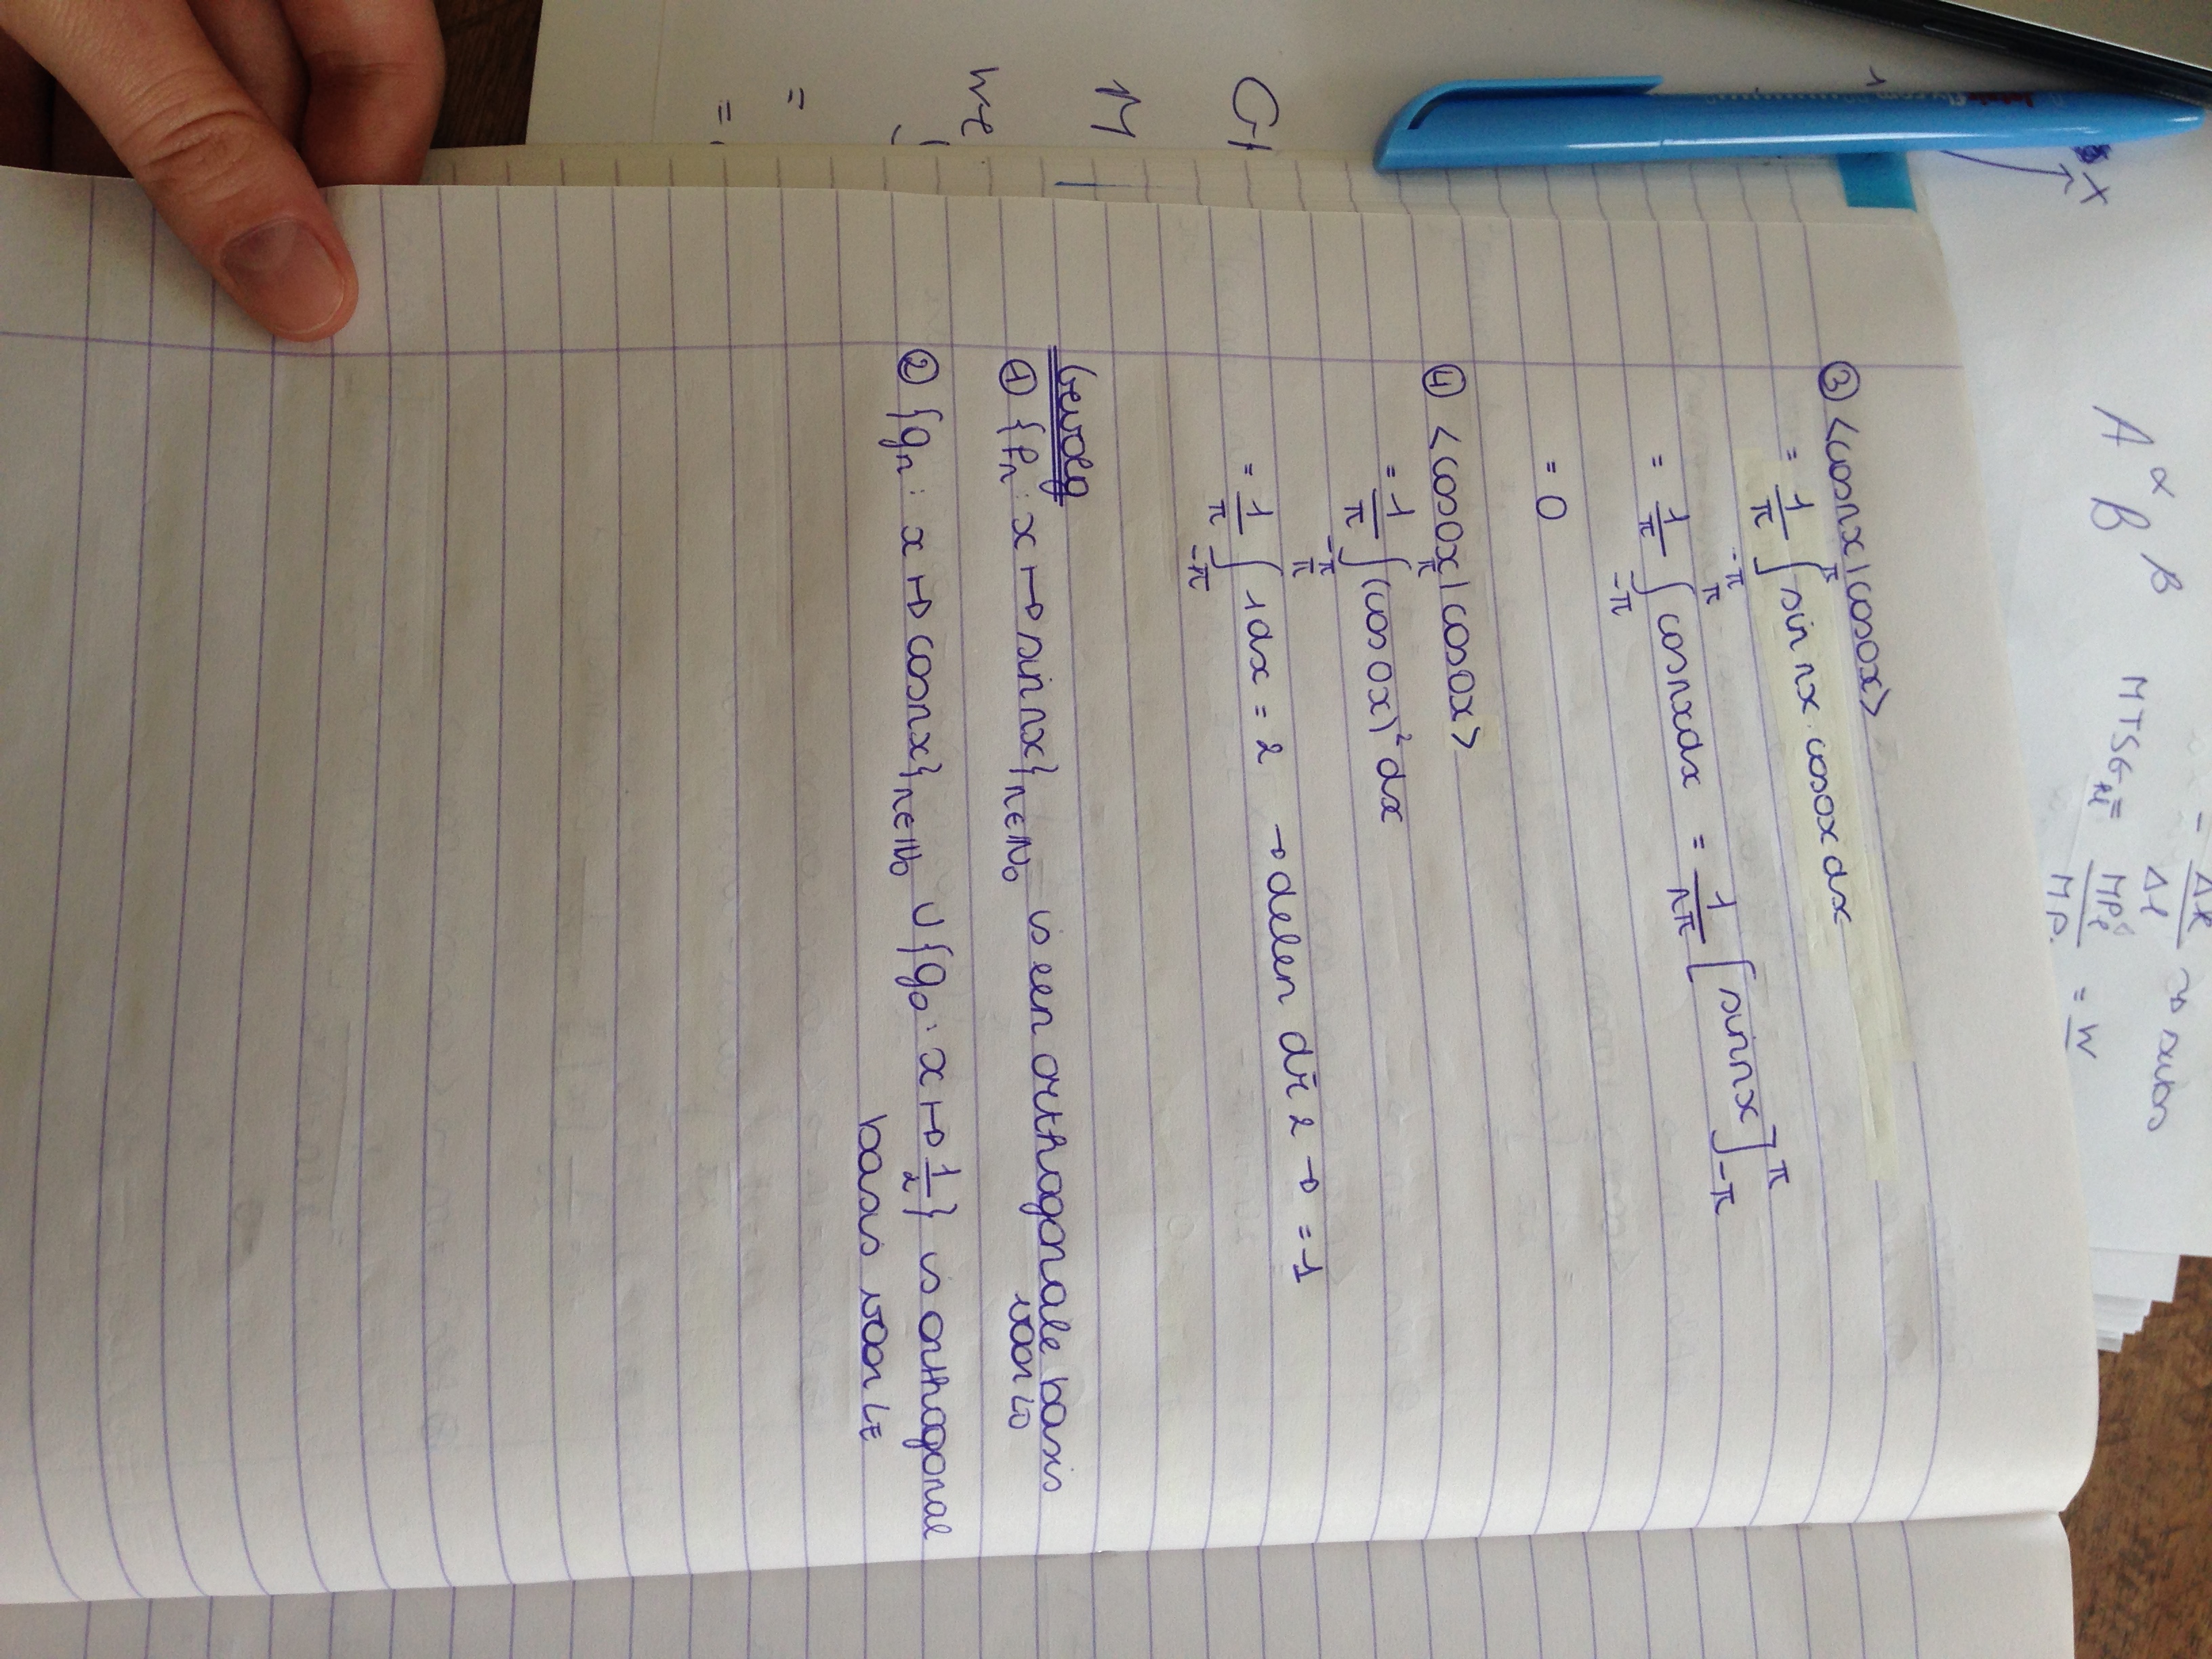 A^α B^β
- Δk/Δl → subs
MTSG_kl = MP_l/MP. = w
x
③ <cosnx|cos0x>
= 1/π ∫_{-π}^{π} sin nx · cos0x dx
= 1/π ∫_{-π}^{π} cosnxdx = 1/nπ [sinnx]_{-π}^{π}
= 0
④ <cos0x|cos0x>
= 1/π ∫_{-π}^{π} (cos0x)² dx
= 1/π ∫_{-π}^{π} 1dx = 2 → delen dr 2 → = 1
Gevolg
① {f_n : x ↦ sin nx}_{n∈ℕ₀} is een orthogonale basis
voor LO
② {g_n : x ↦ cosnx}_{n∈ℕ₀} ∪ {g₀ : x ↦ 1/2} is orthogonal
basis voor LE
M
we
=
=